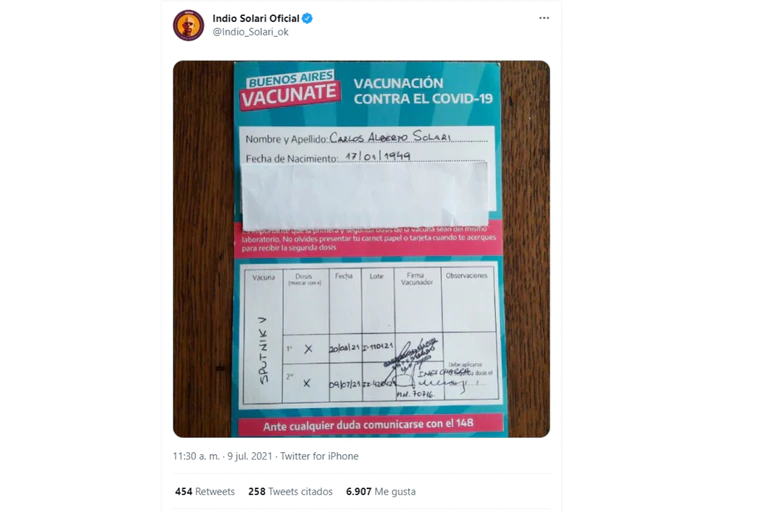 Indio Solari Oficial
@Indio_Solari_ok
BUENOS AIRES
VACUNATE
VACUNACIÓN
CONTRA EL COVID-19
Nombre y Apellido: CARLOS ALBERTO SOLARI
Fecha de Nacimiento: 17/01/1949
que la primera y segunda dosis de la vacuna sean del mismo
laboratorio. No olvides presentar tu carnet papel o tarjeta cuando te acerques
para recibir la segunda dosis
Vacuna Dosis Fecha Lote Firma Observaciones
(marcar con x) Vacunador
SPUTNIK V
1° X
2° X 09/07/21
Debe aplicarse
dosis el
M.N. 70716
Ante cualquier duda comunicarse con el 148
11:30 a. m. · 9 jul. 2021 · Twitter for iPhone
454 Retweets 258 Tweets citados 6.907 Me gusta